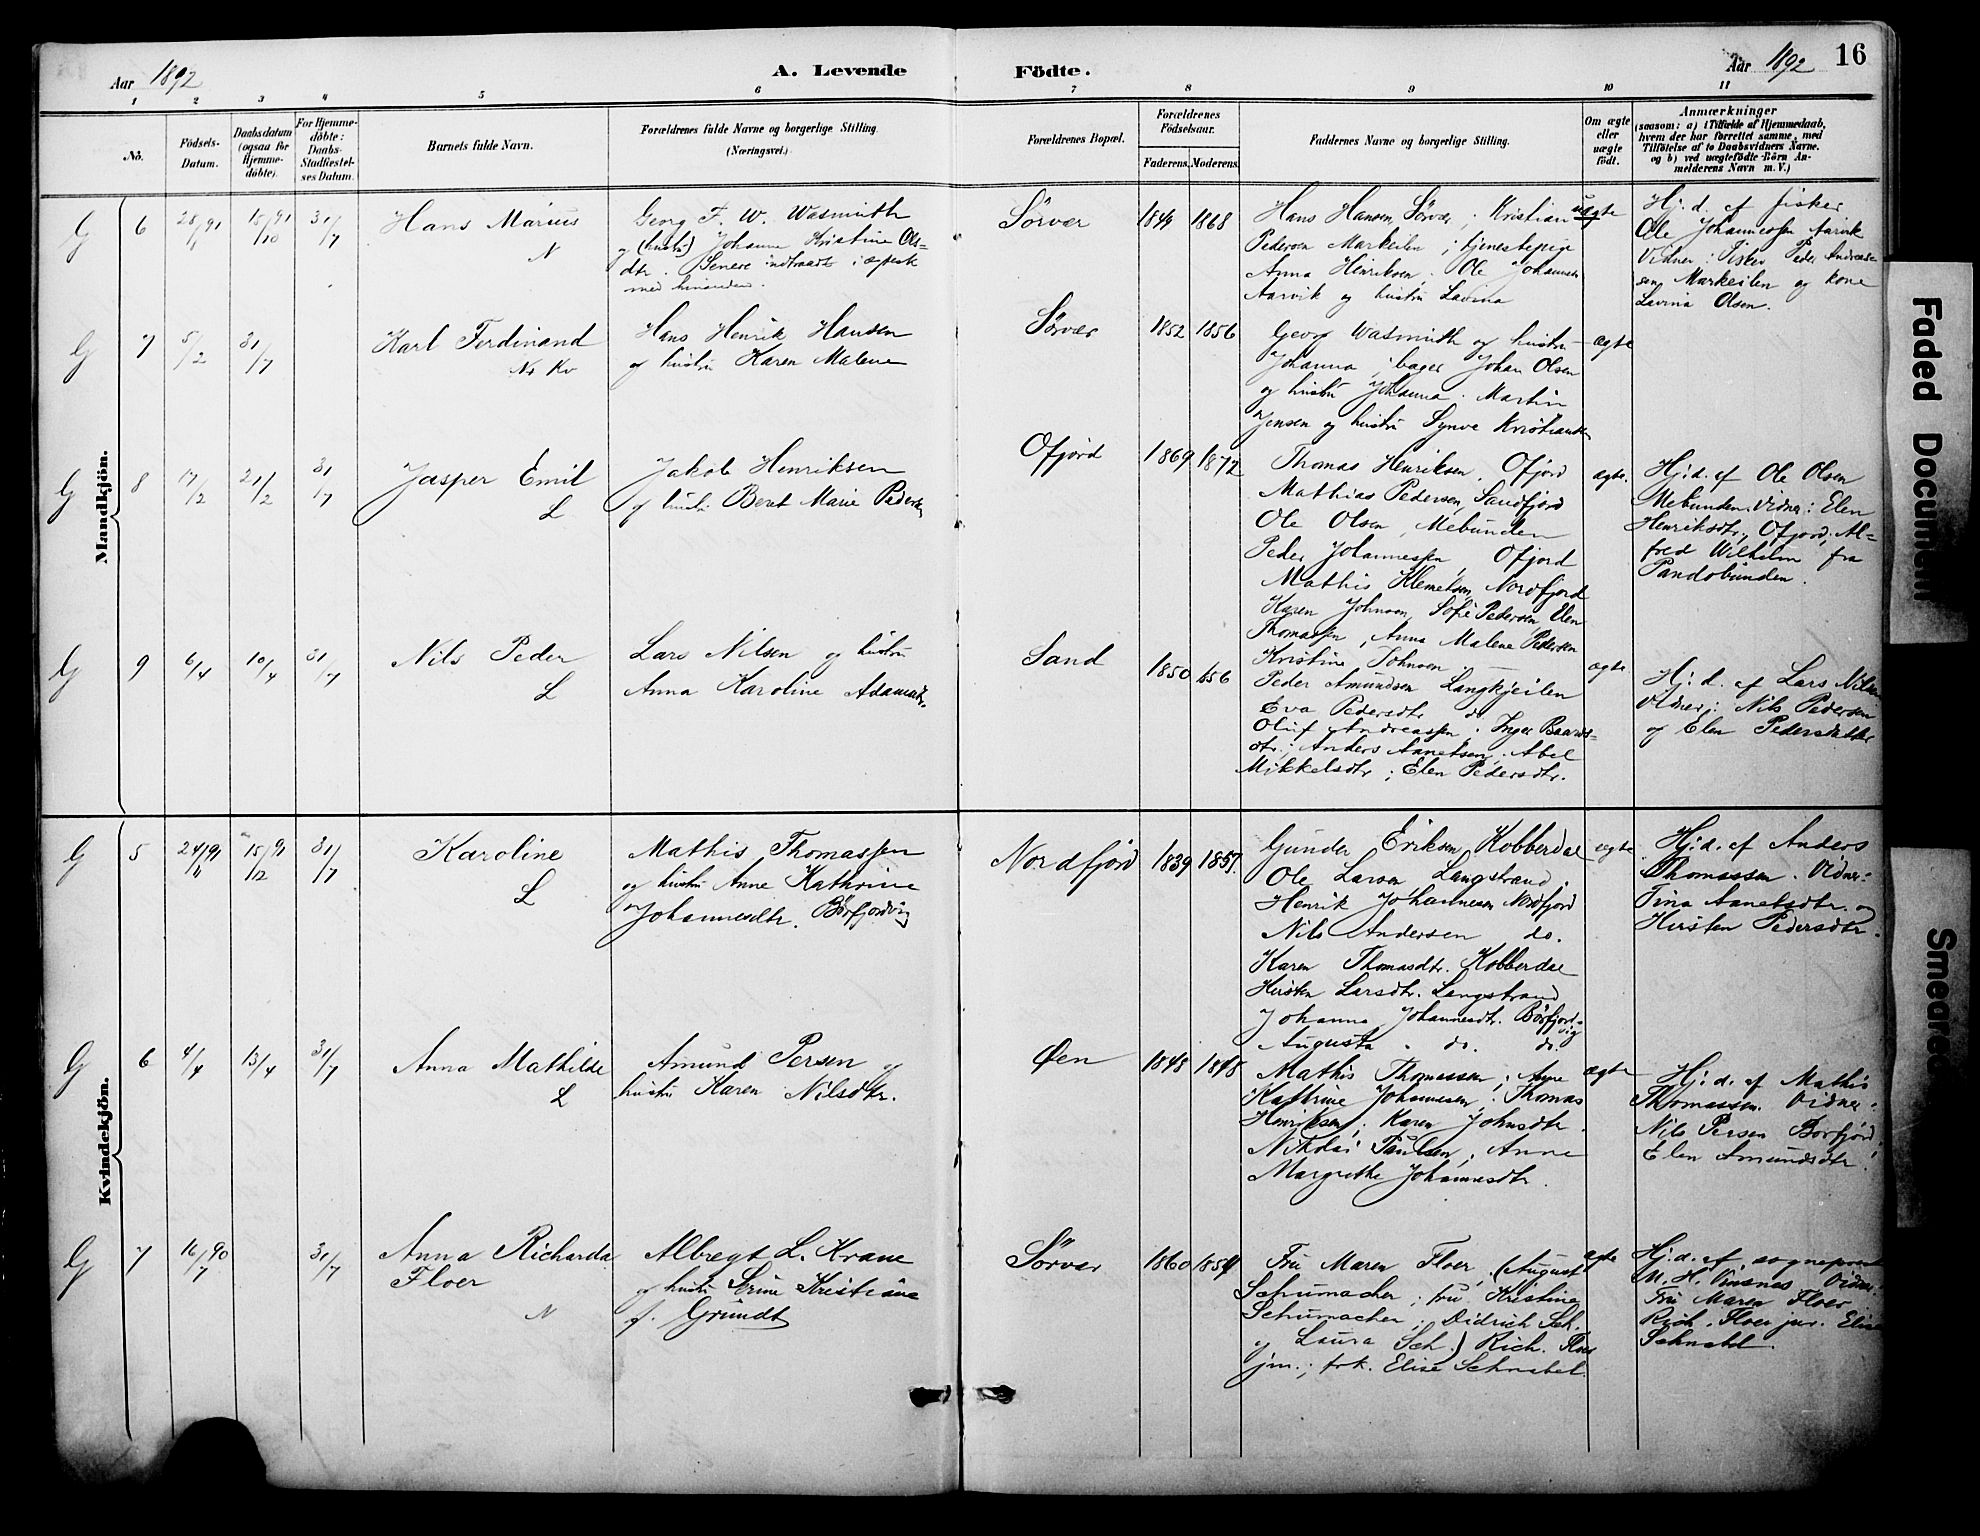 Aar 1892
A. Levende Födte.
Aar 1892
16
1 2 3 4 5 6 7 8 9 10 11
No.
Födsels-
Datum.
Daabsdatum
(ogsaa for
Hjemme-
döbte).
For Hjemme-
döbte:
Daabs-
Stadfæstel-
ses Datum.
Barnets fulde Navn.
Forældrenes fulde Navne og borgerlige Stilling.
(Næringsvei.)
Forældrenes Bopæl.
Forældrenes
Födselsaar.
Faderens. Moderens.
Faddernes Navne og borgerlige Stilling.
Om ægte
eller
uægte
födt.
Anmærkninger
(saasom: a) i Tilfælde af Hjemmedaab,
hvem der har forrettet samme, med
Tilföielse af to Daabsvidners Navne.
og b) ved uægtefödte Börn An-
melderens Navn m. V.)
Mandkjön.
G 6 28/91 15/91 31/7
10
Hans Marius
N
Georg F. W. Wasmuth
og (hustr) Johanna Kristine Ols-
dtr. Senere indtraadt i ægtesk
med hinanden.
Sørvær
1844 1868
Hans Hansen, Sørvær; Kristian
Pedersen Markeilen; tjenestepige
Anna Henriksen. Ole Johannesen
Aarvik og hustru Lavina
uægte
Hj. d. af fisker
Ole Johannessen Aarvik
Vidner: Fisker Peder Andreas-
sen Markeilen og kone
Lavina Olsen.
G 7 5/2 31/7
Karl Ferdinand
N. Kv
Hans Henrik Hansen
og hustru Karen Malene
Sørvær
1852 1856
Georg Wasmuth og hustru
Johanna; bager Johan Olsen
og hustru Johanna. Martin
Jensen og hustru Synve Kristiansen
ægte
G 8 17/2 21/2 31/7
Jasper Emil
L
Jakob Henriksen
og hustru Beret Marie Pedersen
Ofjord
1869 1872
Thomas Henriksen, Ofjord
Mathias Pedersen, Sandfjord
Ole Olsen, Mebunden
Peder Johannessen, Ofjord
Mathis Klemetsen, Nordfjord
Karen Johnsen, Sofie Pedersen, Elen
Thomassen, Anna Malene Pedersen
Kristine Johnsen.
ægte.
Hj. d. af Ole Olsen
Mebunden. Vidner: Elen
Henriksdtr, Ofjord, Al-
fred Wilhelm fra
Pandobunden.
G 9 6/4 10/4 31/7
Nils Peder
L
Lars Nilsen og hustru
Anna Karoline Adamsdtr.
Sand
1850 1856
Peder Amundsen Langkjeilen
Eva Pedersdtr do
Oluf Andreassen, Inger Baards-
dtr; Anders Aanetsen; Abel
Mikkelsdtr; Elen Pedersdtr.
ægte.
Hj. d. af Lars Nilsen
Vidner: Nils Pedersen
og Elen Pedersdatter
Kvindekjön.
G 5 24/91 15/91 31/7
12
Karoline
L
Mathis Thomassen
og hustru Anne Kathrine
Johannesdtr. Børfjordvig
Nordfjord
1839 1857.
Gunder Eriksen Kobberdal
Ole Larsen Langstrand.
Henrik Johannesen Nordfjord
Nils Andersen do.
Karen Thomasdtr. Kobberdal
Kirsten Larsdtr. Langstrand
Johanna Johannesdtr. Børfjord-
vig
Augusta do. do.
ægte
Hj. d. af Anders
Thomassen. Vidner:
Tina Aanetsdtr. og
Kirsten Pedersdtr.
G 6 4/4 13/4 31/7
Anna Mathilde
L
Amund Persen og
hustru Karen Nilsdtr.
Øen
1848 1848
Mathis Thomassen; Anne
Kathrine Johannesen; Thomas
Henriksen; Karen Johnsdtr.
Nikolai Paulsen; Anne
Margrethe Johannesdtr.
ægte
Hj. d. af Mathis
Thomassen. Vidner:
Nils Persen Borfjord
Elen Amundsdtr.
G 7 16/90 31/7
7
Anna Richarda
Floer
N
Albregt L. Krane
og hustru Serine Kristiane
f. Grundt
Sørvær
1860 1854
Fru Maren Floer, (August
Schumacher; fru Kristine
Schumacher; Didrich Sch.
og Laura Sch.) Rich. Floer
jun.; frk. Elise Schnabel.
ægte
Hj. d. af sogneprest
M. H. Vinsnes. Vidner:
Fru Maren Floer,
Rich. Floer jur. Elise
Schnabel.
Faded Document
Smeared